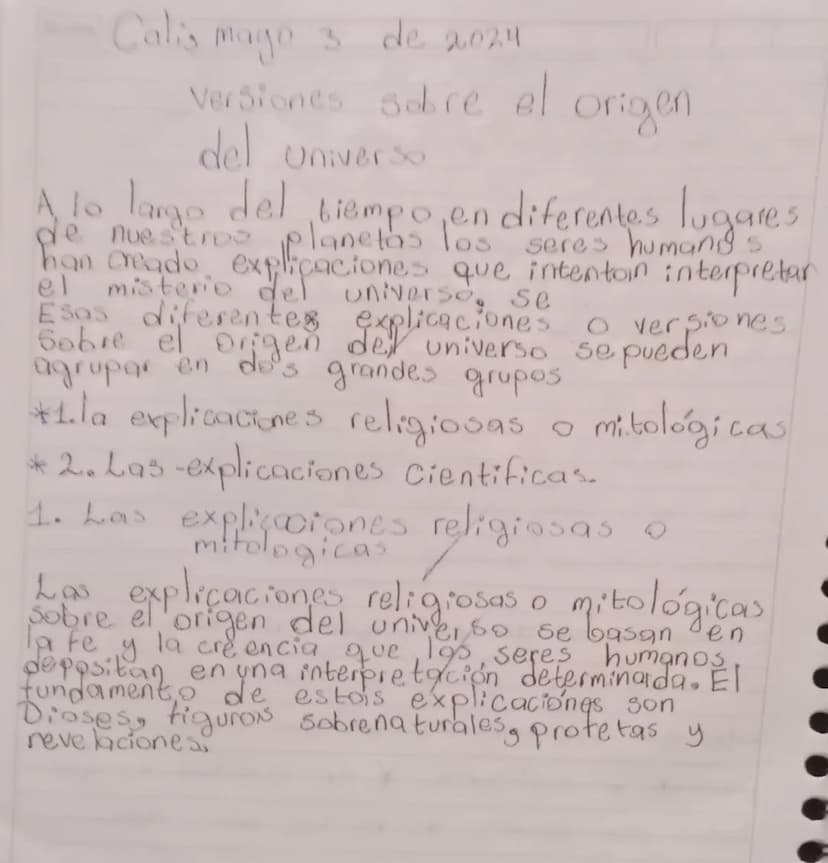 Calis mayo 3 de 2024
versiones sobre el origen
del universo
A lo largo del tiempo, en diferentes lugares
de nuestros planetas los seres humanos
han creado explicaciones que intentan interpretar
el misterio del universo, se
Esas diferentes explicaciones o versiones
sobre el origen del universo se pueden
agrupar en dos grandes grupos
*1. la explicaciones religiosas o mitológicas
* 2. Las explicaciones cientificas.
1. Las explicaciones religiosas o
mitologicas
Las explicaciones religiosas o mitológicas
sobre el origen del universo se basan en
la fe y la creencia que los seres humanos
deppsitan en una interpretación determinada. El
fundamento de estas explicaciones son
Dioses, figuras sobrenaturales, profetas y
revelaciones.